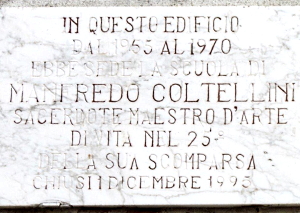 IN QUESTO EDIFICIO
DAL 1963 AL 1970
EBBE SEDE LA SCUOLA DI
MANFREDO COLTELLINI
SACERDOTE MAESTRO D'ARTE
DI VITA NEL 25°
DELLA SUA SCOMPARSA
CHIUSI 1 DICEMBRE 1995